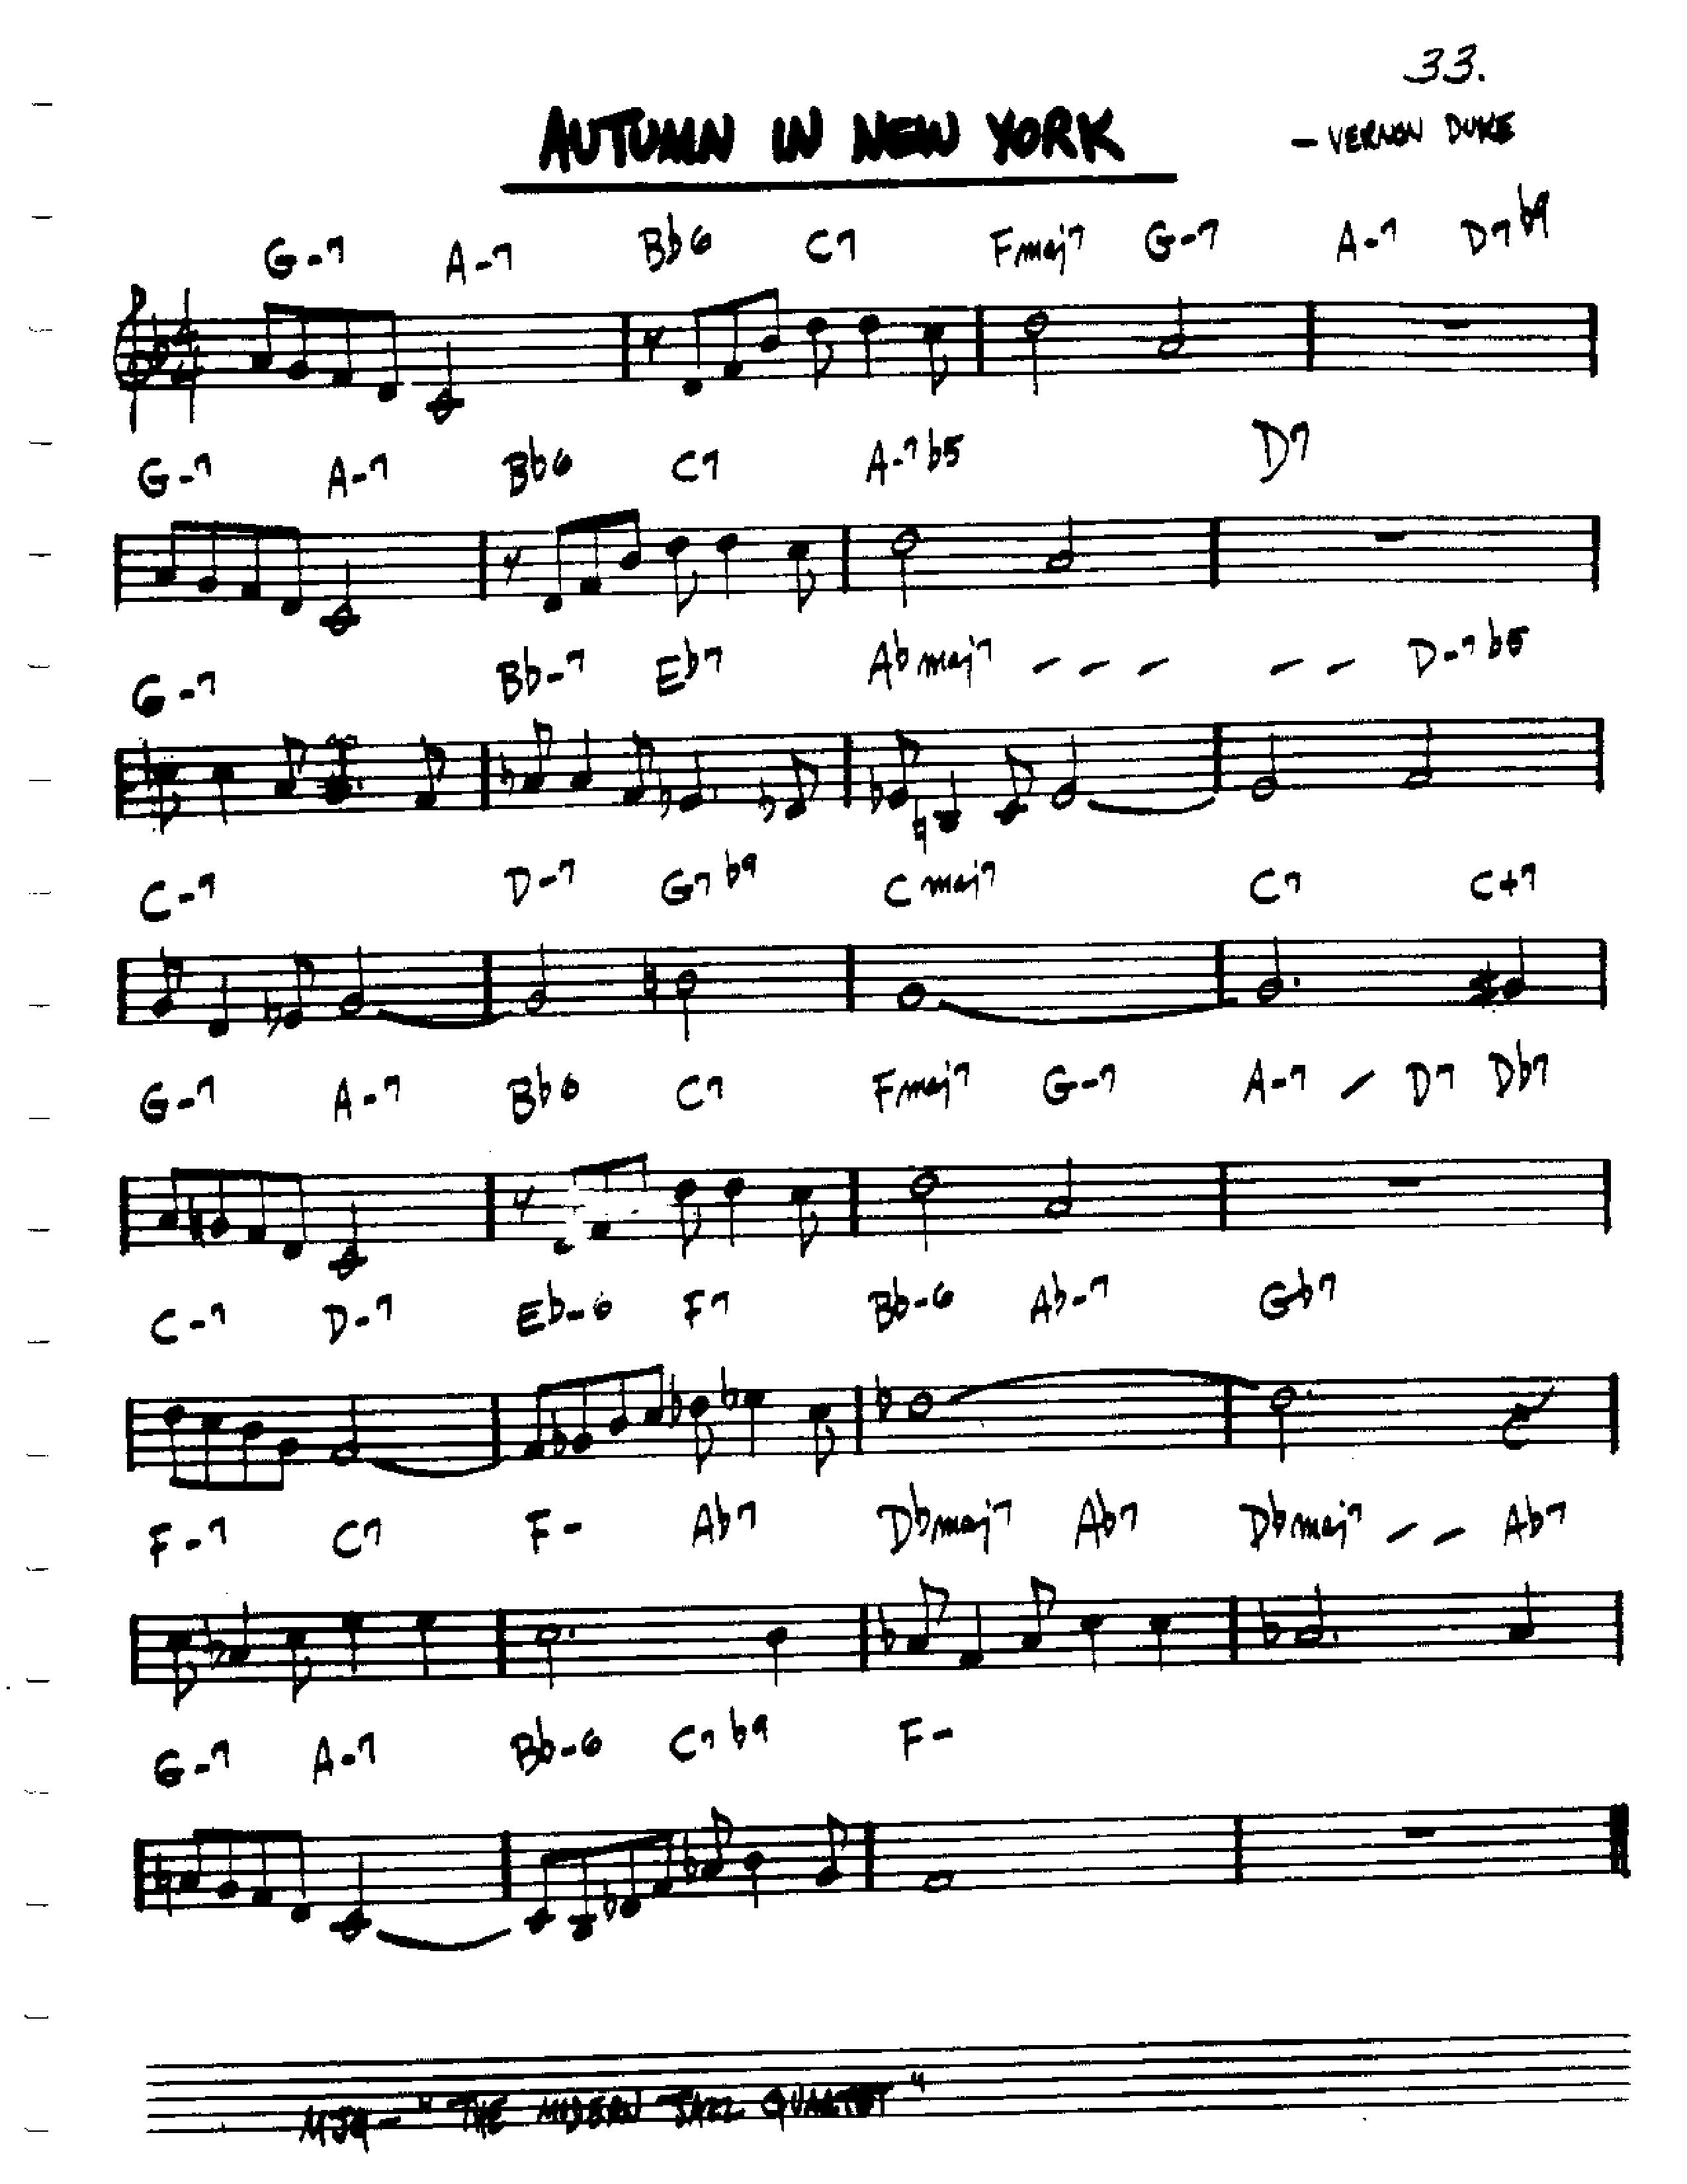 33.
AUTUMN IN NEW YORK
- VERNON DUKE
G-7 A-7 Bb6 C7 Fmaj7 G-7 A-7 D7b9
G-7 A-7 Bb6 C7 A-7b5 D7
G-7 Bb-7 Eb7 Abmaj7 - - - - - D-7b5
C-7 D-7 G7b9 Cmaj7 C7 C+7
G-7 A-7 Bb6 C7 Fmaj7 G-7 A-7 - D7 Db7
C-7 D-7 Eb-6 F7 Bb-6 Ab-7 Gb7
F-7 C7 F- Ab7 Dbmaj7 Ab7 Dbmaj7 - - Ab7
G-7 A-7 Bb-6 C7b9 F-
MJQ - "THE MODERN JAZZ QUARTET"